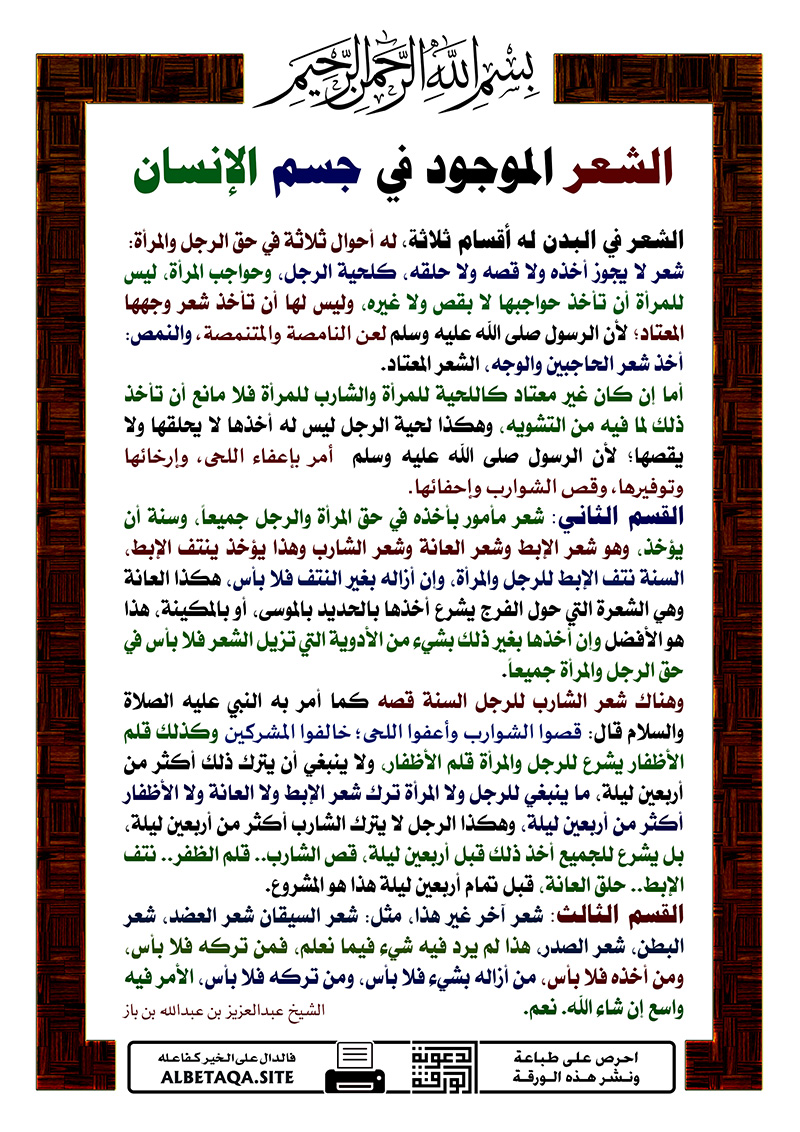 بسم الله الرحمن الرحيم
الشعر الموجود في جسم الإنسان
الشعر في البدن له أقسام ثلاثة، له أحوال ثلاثة في حق الرجل والمرأة:
شعر لا يجوز أخذه ولا قصه ولا حلقه، كلحية الرجل، وحواجب المرأة، ليس
للمرأة أن تأخذ حواجبها لا بقص ولا غيره، وليس لها أن تأخذ شعر وجهها
المعتاد؛ لأن الرسول صلى الله عليه وسلم لعن النامصة والمتنمصة، والنمص:
أخذ شعر الحاجبين والوجه، الشعر المعتاد.
أما إن كان غير معتاد كاللحية للمرأة والشارب للمرأة فلا مانع أن تأخذ
ذلك لما فيه من التشويه، وهكذا لحية الرجل ليس له أخذها لا يحلقها ولا
يقصها؛ لأن الرسول صلى الله عليه وسلم أمر بإعفاء اللحى، وإرخائها
وتوفيرها، وقص الشوارب وإحفائها.
القسم الثاني: شعر مأمور بأخذه في حق المرأة والرجل جميعاً، وسنة أن
يؤخذ، وهو شعر الإبط وشعر العانة وشعر الشارب وهذا يؤخذ ينتف الإبط،
السنة نتف الإبط للرجل والمرأة، وإن أزاله بغير النتف فلا بأس، هكذا العانة
وهي الشعرة التي حول الفرج يشرع أخذها بالحديد بالموسى، أو بالمكينة، هذا
هو الأفضل وإن أخذها بغير ذلك بشيء من الأدوية التي تزيل الشعر فلا بأس في
حق الرجل والمرأة جميعاً.
وهناك شعر الشارب للرجل السنة قصه كما أمر به النبي عليه الصلاة
والسلام قال: قصوا الشوارب وأعفوا اللحى؛ خالفوا المشركين وكذلك قلم
الأظفار يشرع للرجل والمرأة قلم الأظفار، ولا ينبغي أن يترك ذلك أكثر من
أربعين ليلة، ما ينبغي للرجل ولا المرأة ترك شعر الإبط ولا العانة ولا الأظفار
أكثر من أربعين ليلة، وهكذا الرجل لا يترك الشارب أكثر من أربعين ليلة،
بل يشرع للجميع أخذ ذلك قبل أربعين ليلة، قص الشارب.. قلم الظفر.. نتف
الإبط.. حلق العانة، قبل تمام أربعين ليلة هذا هو المشروع.
القسم الثالث: شعر آخر غير هذا، مثل: شعر السيقان شعر العضد، شعر
البطن، شعر الصدر، هذا لم يرد فيه شيء فيما نعلم، فمن تركه فلا بأس،
ومن أخذه فلا بأس، من أزاله بشيء فلا بأس، ومن تركه فلا بأس، الأمر فيه
واسع إن شاء الله. نعم.
الشيخ عبدالعزيز بن عبدالله بن باز
احرص على طباعة
ونشر هذه الورقة
الورقة
الدعوية
فالدال على الخير كفاعله
ALBETAQA.SITE